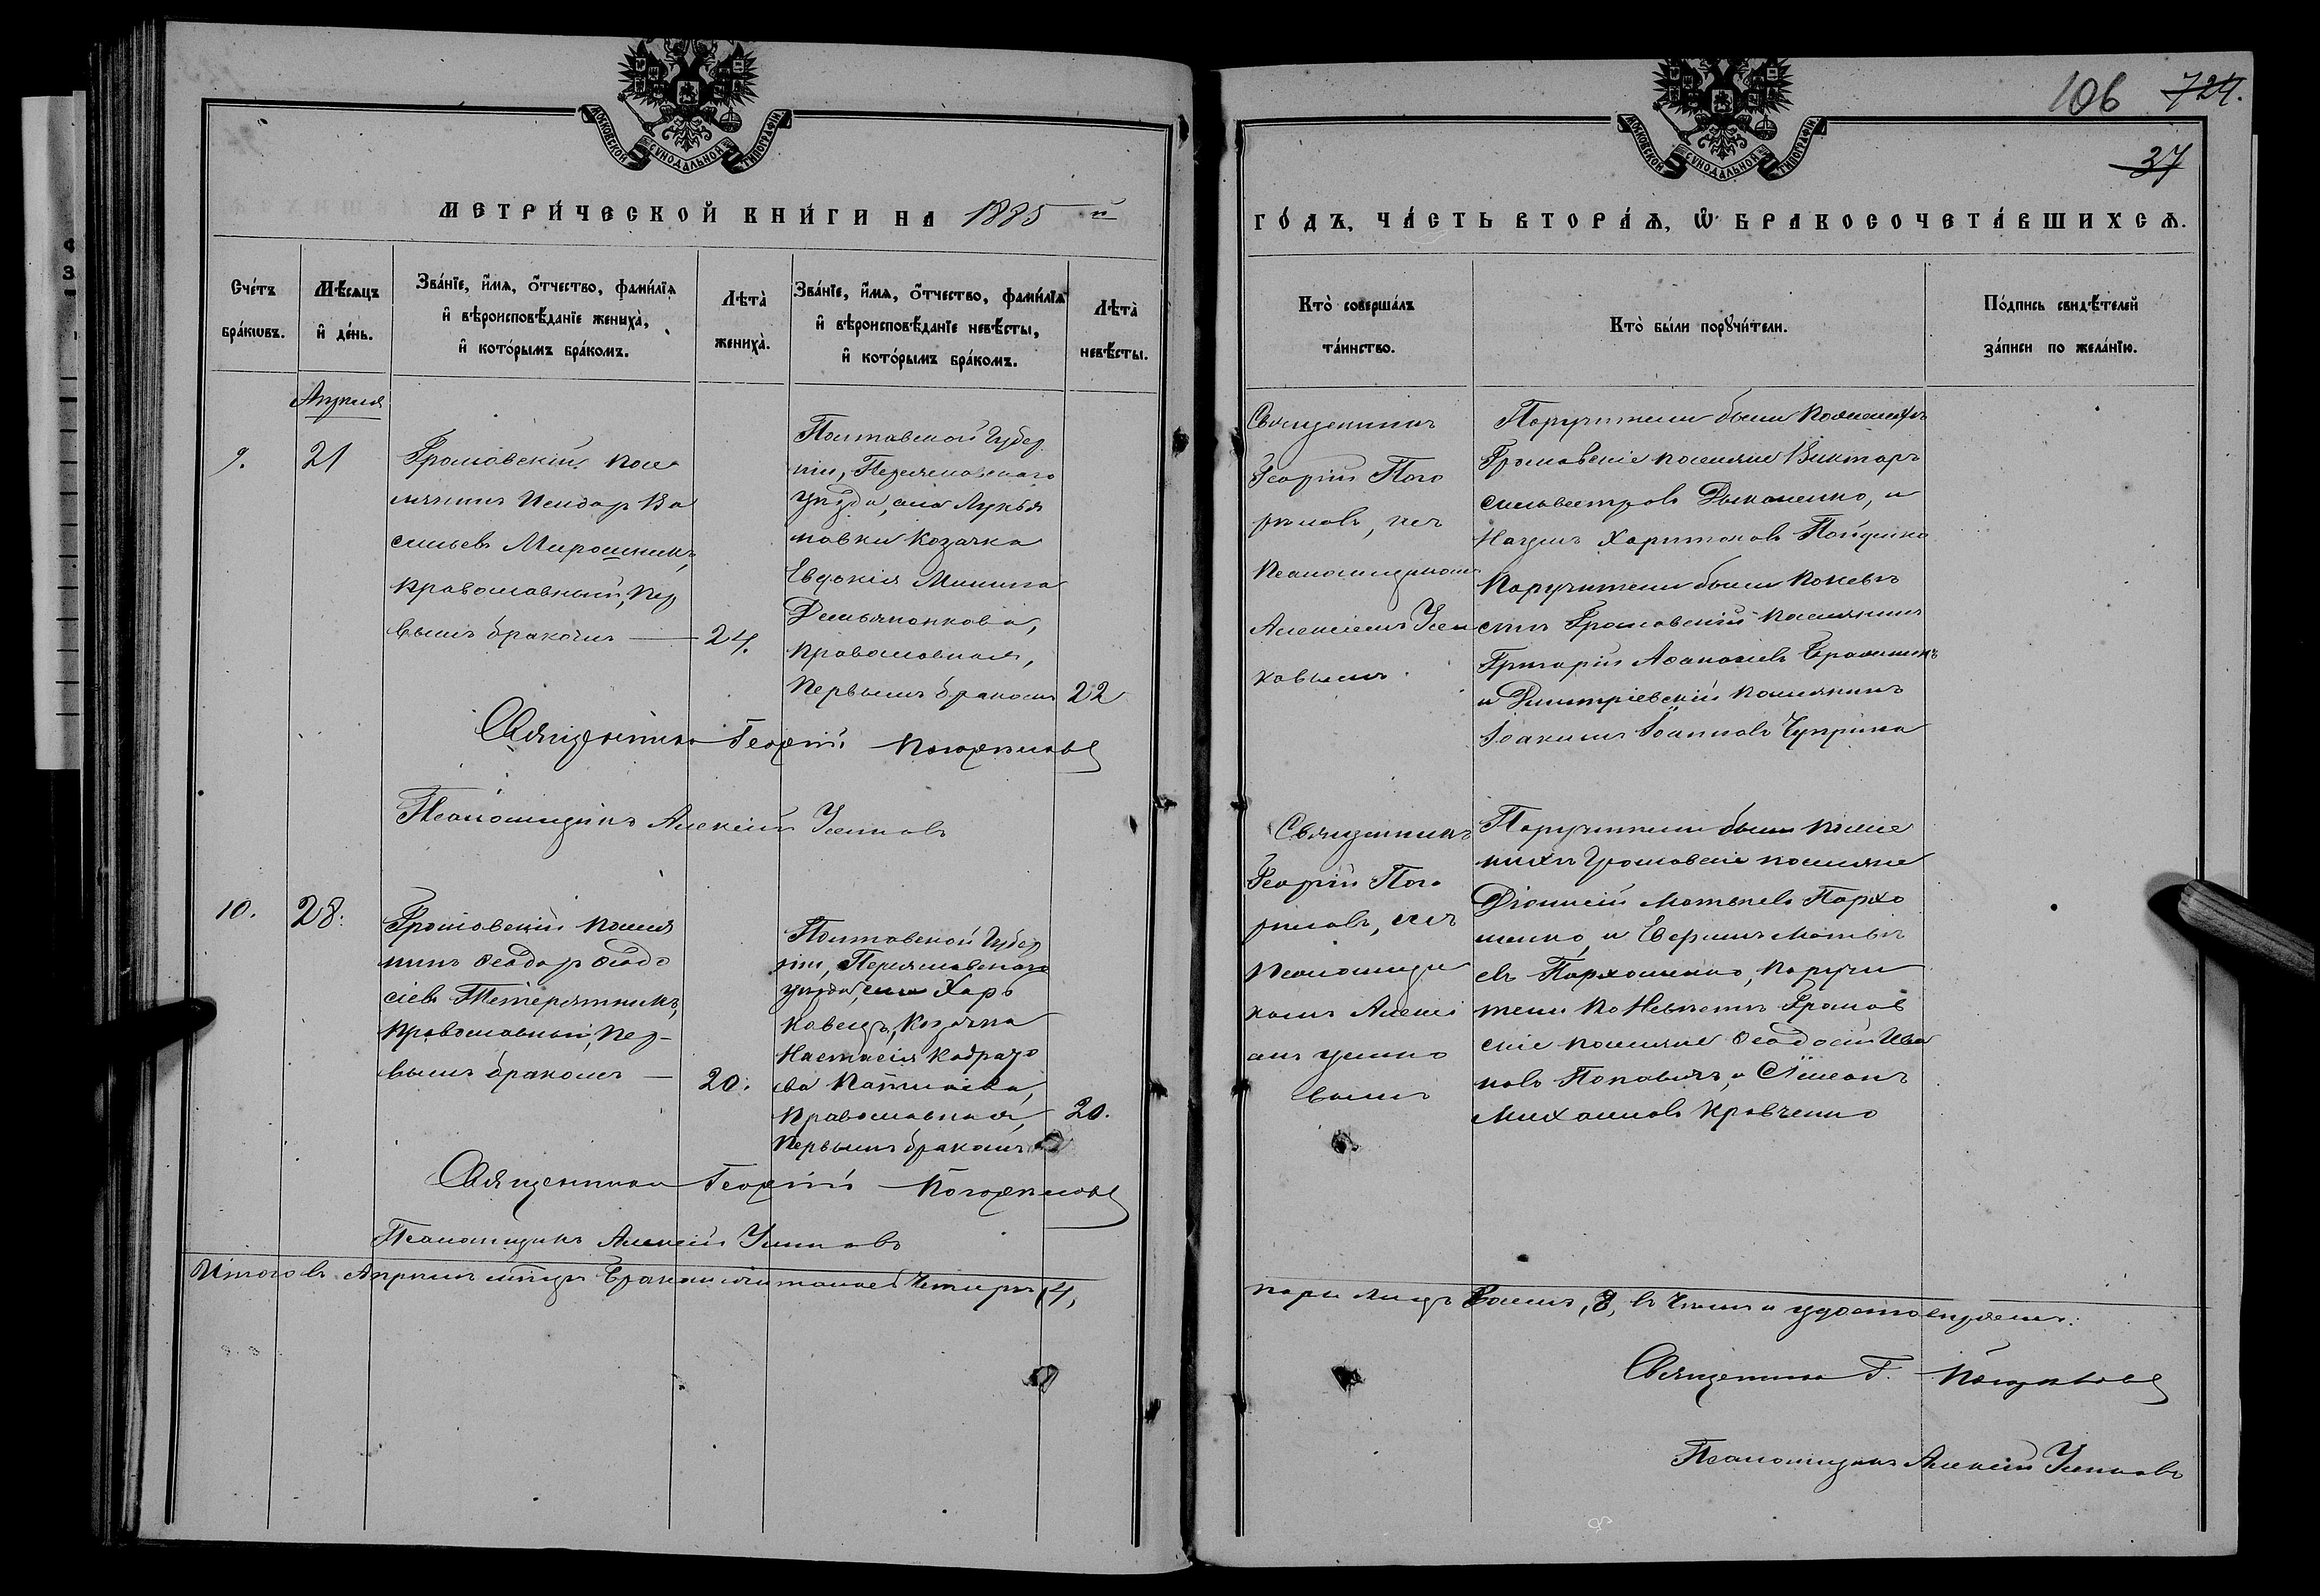 106 724.
37
МОСКОВСКОЙ СУНОДАЛЬНОЙ ТИПОГРАФІИ
МОСКОВСКОЙ СУНОДАЛЬНОЙ ТИПОГРАФІИ
МЕТРИ́ЧЕСКОЙ КНИ́ГИ НА 1885 й
ГО́ДЪ, ЧА́СТЬ ВТОРА́Ѧ, Ѡ҆ БРАКОСОЧЕТА́ВШИХСѦ.
Сче́тъ
бра́кѡвъ.
Мѣ́сяцъ
и҆ де́нь.
Зва́нїе, и҆́мѧ, ѻ҆́тчество, фами́лїѧ
и҆ вѣроисповѣ́данїе жениха̀,
и҆ кото́рымъ бра́комъ.
Лѣта̀
жениха̀.
Зва́нїе, и҆́мѧ, ѻ҆́тчество, фами́лїѧ
и҆ вѣроисповѣ́данїе невѣ́сты,
и҆ кото́рымъ бра́комъ.
Лѣта̀
невѣ́сты.
Кто̀ соверша́лъ
та́инство.
Кто̀ бы́ли порꙋчи́тели.
По́дпись свидѣ́телей
за́писи по жела́нїю.
Апреля
9.
21
Громовскій посе
лянинъ Исидор Ва
сильевъ Мирошникъ,
православный, пер
вымъ бракомъ
24.
Полтавской Губер
ніи, Переяславского
уѣзда, села Лукья
новки Козачка
Евдокія Минина
Демьяненкова,
православная,
первымъ бракомъ
22
Священникъ
Георгій Пого
рѣловъ, съ
Псаломщикомъ
Алексіемъ Усен
ковымъ.
Поручители были по женихѣ
Громовскіе поселяне Викторъ
Сильвестровъ Дьяченко, и
Наумъ Харитоновъ
Поручители были по невѣ
стѣ Громовскій поселянинъ
Григорій Аѳанасіевъ
и Димитріевскій поселянинъ
Іоакимъ Іоанновъ Чуприна
Священникъ Георгій Погорѣловъ
Псаломщикъ Алексій Усенковъ
10.
28.
Громовскій поселя
нинъ Ѳеодоръ Ѳеодо
сіевъ Тетерятникъ,
православный, пер-
вымъ бракомъ
20.
Полтавской Губер
ніи, Переяславского
уѣзда, села Харь
ковецъ, Козачка
Настасія
православная,
первымъ бракомъ
20.
Священникъ
Георгій Пого
рѣловъ, съ
Псаломщи
комъ Алексі
емъ Усенко
вымъ
Поручители были по же
нихѣ Громовскіе поселяне
Діонисій Матвѣевъ Пархо
менко, и Ефремъ Матвѣ
евъ Пархоменко, Поручи
тели по Невѣстѣ Громов
скіе поселяне Ѳеодосій Ива
новъ Поповичъ, и Симеонъ
Михаиловъ Кравченко
Священникъ Георгій Погорѣловъ
Псаломщикъ Алексій Усенковъ
Итого въ Апрѣлѣ мѣсяцѣ бракосочиталось четыре, 4,
пары лицъ восемь, 8, въ чемъ и удостовѣряемъ:
Священникъ Г. Погорѣловъ
Псаломщикъ Алексій Усенковъ